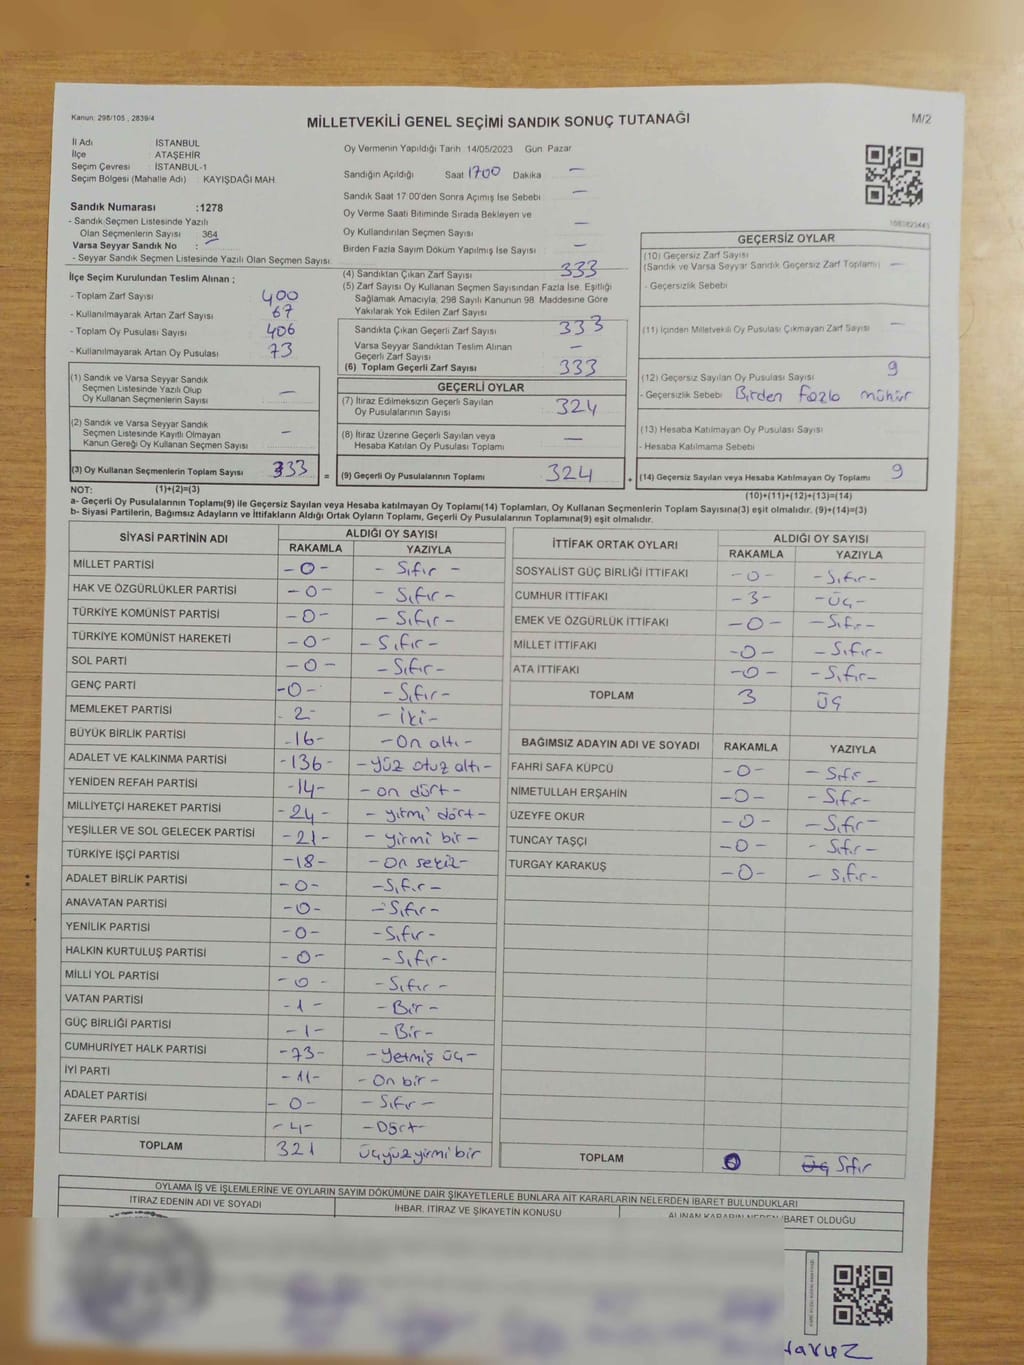 Kanun: 298/105 , 2839/4
MİLLETVEKİLİ GENEL SEÇİMİ SANDIK SONUÇ TUTANAĞI
M/2
İl Adı İSTANBUL
İlçe ATAŞEHİR
Seçim Çevresi İSTANBUL-1
Seçim Bölgesi (Mahalle Adı) KAYIŞDAĞI MAH.
Sandık Numarası :1278
- Sandık Seçmen Listesinde Yazılı
Olan Seçmenlerin Sayısı 364
Varsa Seyyar Sandık No : -
- Seyyar Sandık Seçmen Listesinde Yazılı Olan Seçmen Sayısı
Oy Vermenin Yapıldığı Tarih 14/05/2023 Gün Pazar
Sandığın Açıldığı Saat 1700 Dakika -
Sandık Saat 17 00'den Sonra Açımış İse Sebebi -
Oy Verme Saati Bitiminde Sırada Bekleyen ve
Oy Kullandırılan Seçmen Sayısı -
Birden Fazla Sayım Döküm Yapılmış İse Sayısı -
İlçe Seçim Kurulundan Teslim Alınan ;
- Toplam Zarf Sayısı 400
- Kullanılmayarak Artan Zarf Sayısı 67
- Toplam Oy Pusulası Sayısı 406
- Kullanılmayarak Artan Oy Pusulası 73
(1) Sandık ve Varsa Seyyar Sandık
Seçmen Listesinde Yazılı Olup
Oy Kullanan Seçmenlerin Sayısı -
(2) Sandık ve Varsa Seyyar Sandık
Seçmen Listesinde Kayıtlı Olmayan
Kanun Gereği Oy Kullanan Seçmen Sayısı -
(3) Oy Kullanan Seçmenlerin Toplam Sayısı 333 =
(4) Sandıktan Çıkan Zarf Sayısı 333
(5) Zarf Sayısı Oy Kullanan Seçmen Sayısından Fazla İse, Eşitliği
Sağlamak Amacıyla, 298 Sayılı Kanunun 98. Maddesine Göre
Yakılarak Yok Edilen Zarf Sayısı
Sandıkta Çıkan Geçerli Zarf Sayısı 333
Varsa Seyyar Sandıktan Teslim Alınan
Geçerli Zarf Sayısı -
(6) Toplam Geçerli Zarf Sayısı 333
GEÇERLİ OYLAR
(7) İtiraz Edilmeksizin Geçerli Sayılan
Oy Pusulalarının Sayısı 324
(8) İtiraz Üzerine Geçerli Sayılan veya
Hesaba Katılan Oy Pusulası Toplamı -
(9) Geçerli Oy Pusulalarının Toplamı 324 +
GEÇERSİZ OYLAR
(10) Geçersiz Zarf Sayısı
(Sandık ve Varsa Seyyar Sandık Geçersiz Zarf Toplamı) -
- Geçersizlik Sebebi
(11) İçinden Milletvekili Oy Pusulası Çıkmayan Zarf Sayısı -
(12) Geçersiz Sayılan Oy Pusulası Sayısı 9
- Geçersizlik Sebebi Birden fazla mühür
(13) Hesaba Katılmayan Oy Pusulası Sayısı
- Hesaba Katılmama Sebebi
(14) Geçersiz Sayılan veya Hesaba Katılmayan Oy Toplamı 9
NOT: (1)+(2)=(3)
(10)+(11)+(12)+(13)=(14)
a- Geçerli Oy Pusulalarının Toplamı(9) ile Geçersiz Sayılan veya Hesaba katılmayan Oy Toplamı(14) Toplamları, Oy Kullanan Seçmenlerin Toplam Sayısına(3) eşit olmalıdır. (9)+(14)=(3)
b- Siyasi Partilerin, Bağımsız Adayların ve İttifakların Aldığı Oyların Toplamı, Geçerli Oy Pusulalarının Toplamına(9) eşit olmalıdır.
SİYASİ PARTİNİN ADI ALDIĞI OY SAYISI
RAKAMLA YAZIYLA
MİLLET PARTİSİ -0- - Sıfır -
HAK VE ÖZGÜRLÜKLER PARTİSİ -0- - Sıfır -
TÜRKİYE KOMÜNİST PARTİSİ -0- - Sıfır -
TÜRKİYE KOMÜNİST HAREKETİ -0- - Sıfır -
SOL PARTİ -0- - Sıfır -
GENÇ PARTİ -0- - Sıfır -
MEMLEKET PARTİSİ 2- - iki -
BÜYÜK BİRLİK PARTİSİ -16- - On altı -
ADALET VE KALKINMA PARTİSİ -136- - yüz otuz altı -
YENİDEN REFAH PARTİSİ -14- - on dört -
MİLLİYETÇİ HAREKET PARTİSİ -24- - yirmi dört -
YEŞİLLER VE SOL GELECEK PARTİSİ -21- - yirmi bir -
TÜRKİYE İŞÇİ PARTİSİ -18- - On sekiz -
ADALET BİRLİK PARTİSİ -0- - Sıfır -
ANAVATAN PARTİSİ -0- - Sıfır -
YENİLİK PARTİSİ -0- - Sıfır -
HALKIN KURTULUŞ PARTİSİ -0- - Sıfır -
MİLLİ YOL PARTİSİ -0- - Sıfır -
VATAN PARTİSİ -1- - Bir -
GÜÇ BİRLİĞİ PARTİSİ -1- - Bir -
CUMHURİYET HALK PARTİSİ -73- - yetmiş üç -
İYİ PARTİ -11- - On bir -
ADALET PARTİSİ -0- - Sıfır -
ZAFER PARTİSİ -4- - Dört -
TOPLAM 321 üçyüz yirmi bir
İTTİFAK ORTAK OYLARI ALDIĞI OY SAYISI
RAKAMLA YAZIYLA
SOSYALİST GÜÇ BİRLİĞİ İTTİFAKI -0- - Sıfır -
CUMHUR İTTİFAKI -3- - Üç -
EMEK VE ÖZGÜRLÜK İTTİFAKI -0- - Sıfır -
MİLLET İTTİFAKI -0- - Sıfır -
ATA İTTİFAKI -0- - Sıfır -
TOPLAM 3 Üç
BAĞIMSIZ ADAYIN ADI VE SOYADI RAKAMLA YAZIYLA
FAHRİ SAFA KÜPCÜ -0- - Sıfır -
NİMETULLAH ERŞAHİN -0- - Sıfır -
ÜZEYFE OKUR -0- - Sıfır -
TUNCAY TAŞÇI -0- - Sıfır -
TURGAY KARAKUŞ -0- - Sıfır -
TOPLAM 0 Üç Sıfır
OYLAMA İŞ VE İŞLEMLERİNE VE OYLARIN SAYIM DÖKÜMÜNE DAİR ŞİKAYETLERLE BUNLARA AİT KARARLARIN NELERDEN İBARET BULUNDUKLARI
İTİRAZ EDENİN ADI VE SOYADI İHBAR, İTİRAZ VE ŞİKAYETİN KONUSU ALINAN KARARIN NEDEN İBARET OLDUĞU